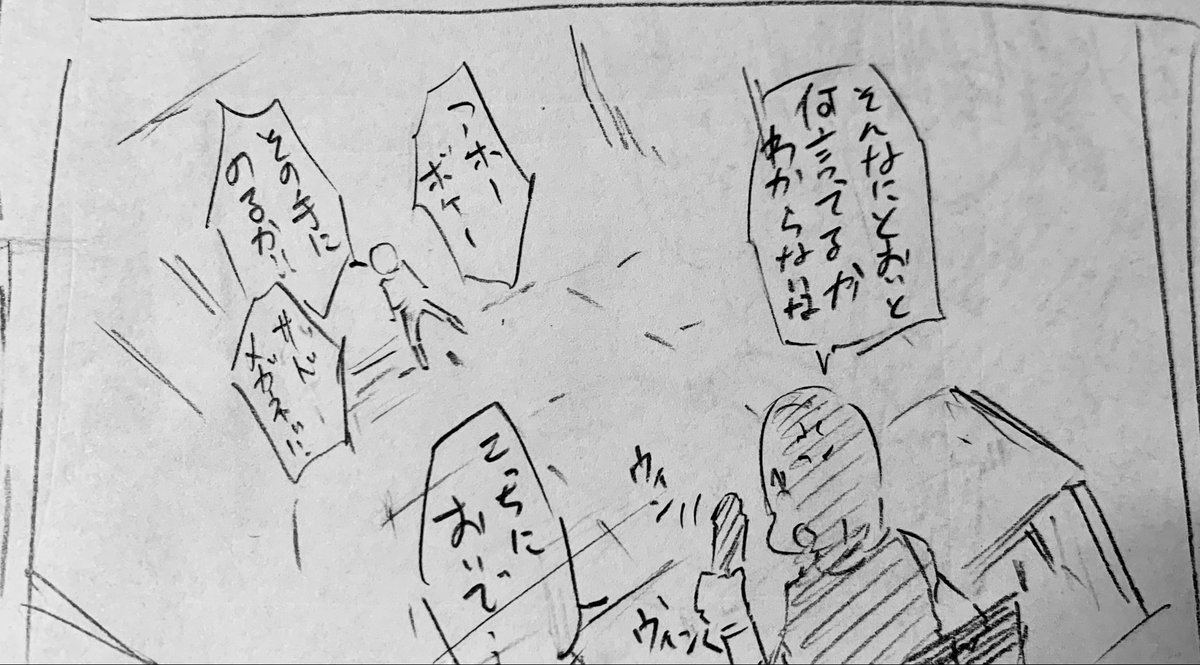 そんなにとおいと
何言ってるか
わからないな
ホー
ボケー
その手に
のるか!!
メガネ!!
こっちに
おいで
ウィン